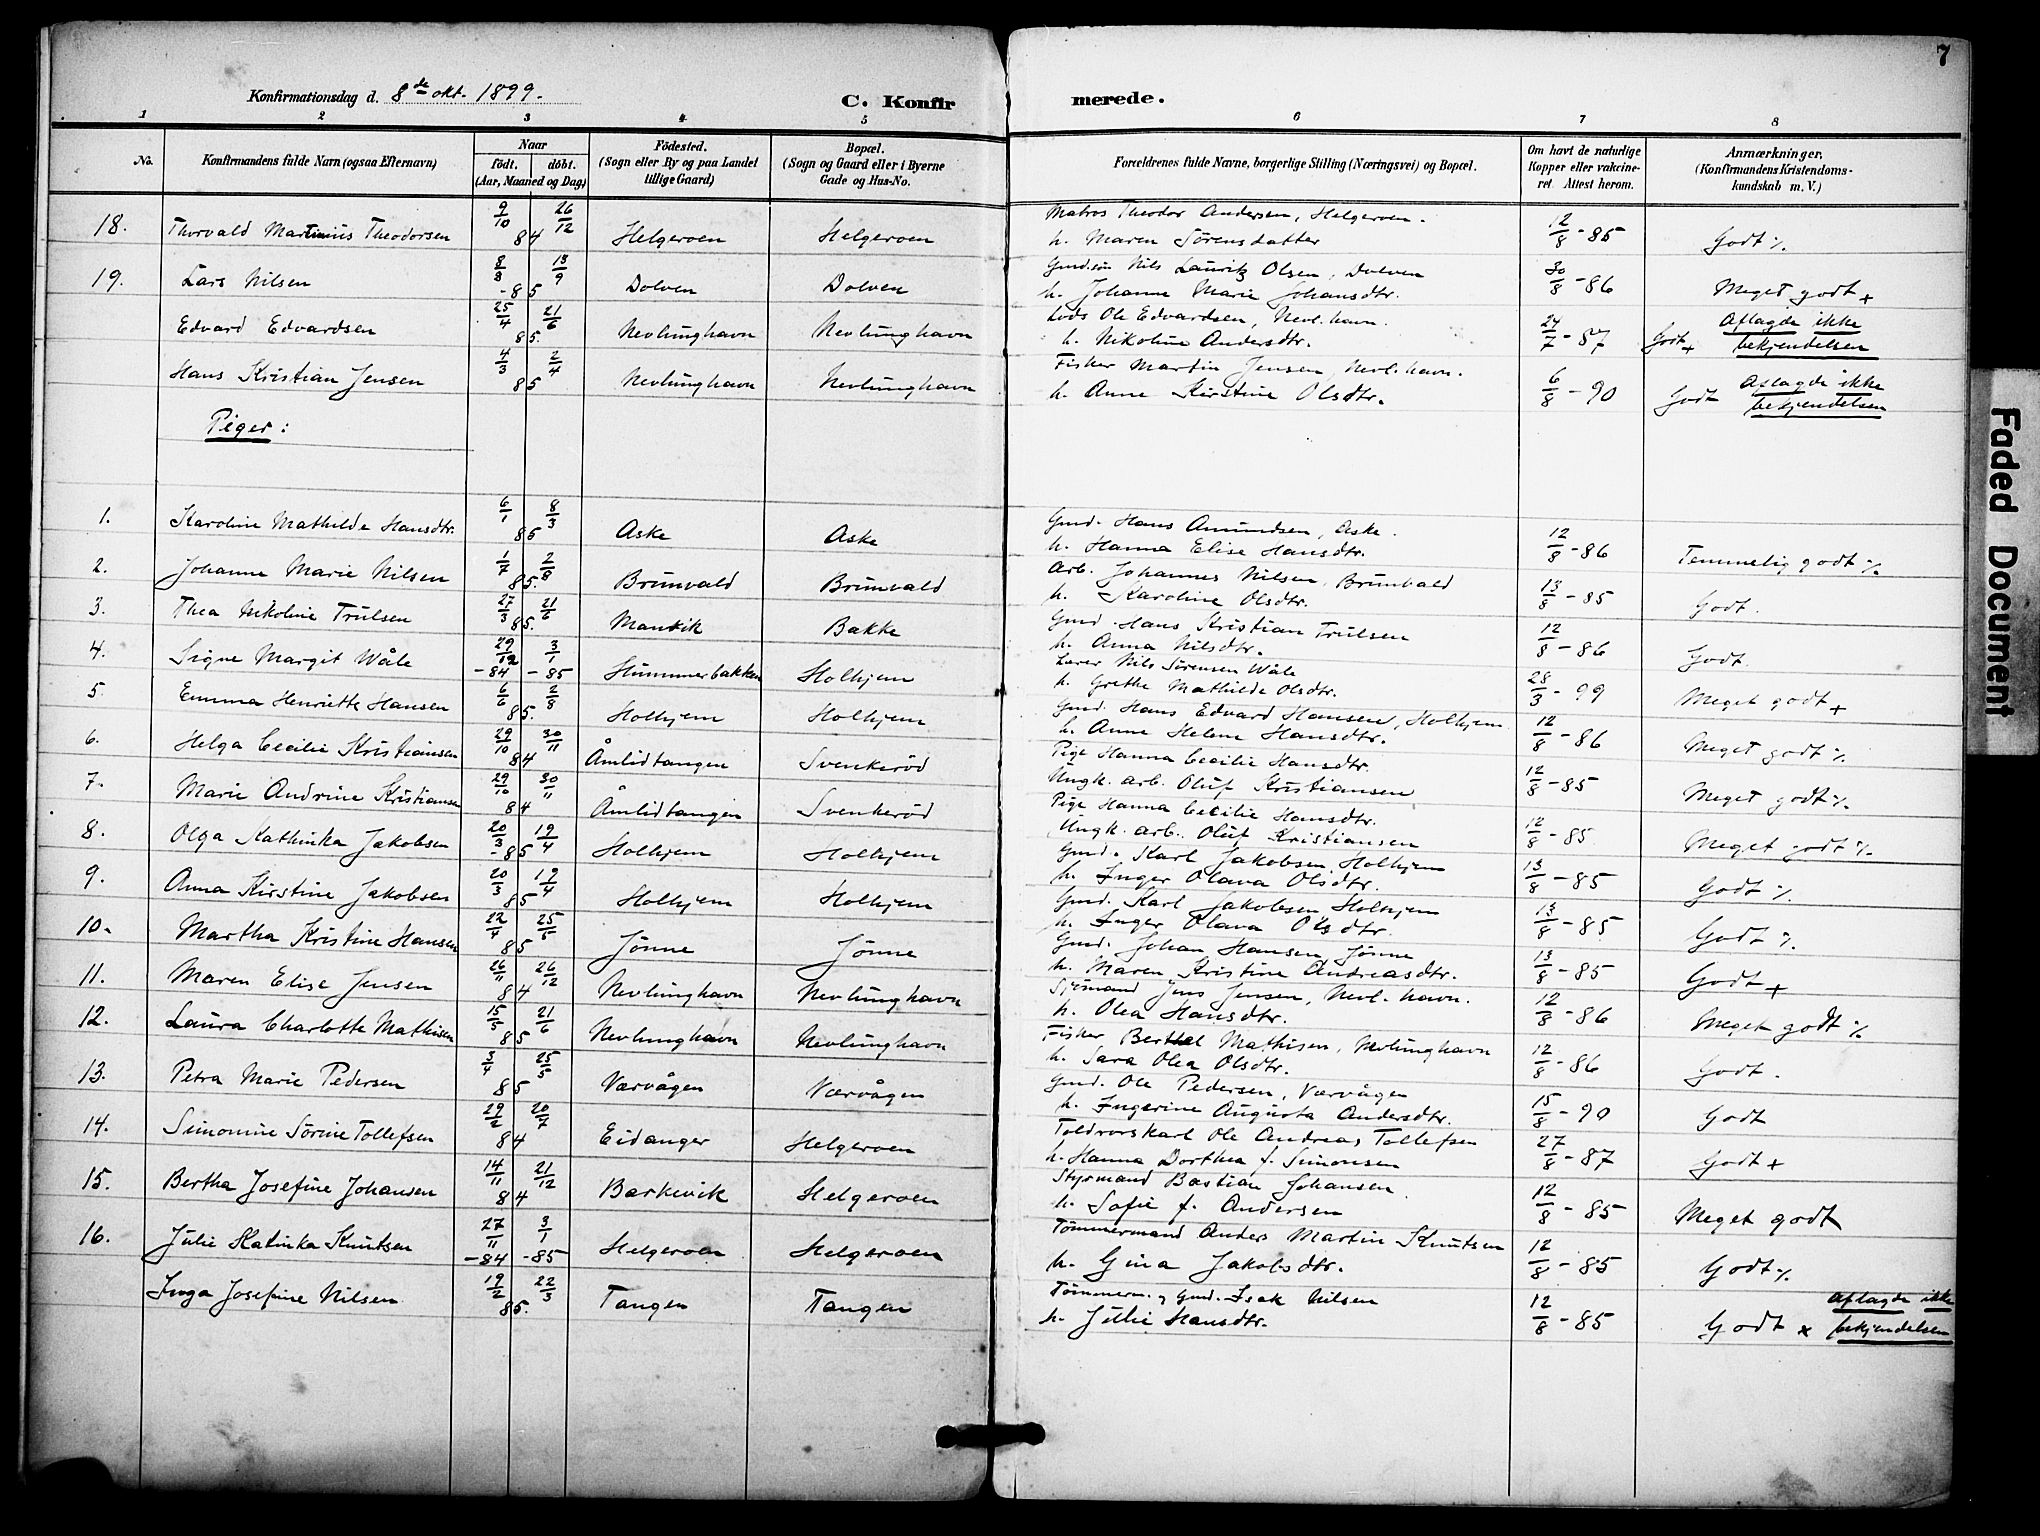 7
Konfirmationsdag d. 8de okt. 1899.
C. Konfir merede.
1 2 3 4 5 6 7 8
No.
Konfirmandens fulde Navn (ogsaa Efternavn)
Naar
födt. döbt.
(Aar, Maaned og Dag)
Födested.
(Sogn eller By og paa Landet
tillige Gaard)
Bopæl.
(Sogn og Gaard eller i Byerne
Gade og Hus-No.
Forældrenes fulde Navne, borgerlige Stilling (Næringsvei) og Bopæl.
Om havt de naturlige
Kopper eller vakcine-
ret. Attest herom.
Anmærkninger.
(Konfirmandens Kristendoms-
kundskab m. V.)
18. Thorvald Martinius Theodorsen 9/10 26/12 84 Helgeroen Helgeroen Matros Theodor Andersen, Helgeroen.
h. Maren Sörensdatter 12/8 - 85 Godt %
19. Lars Nilsen 8/8 13/9 - 85 Dolven Dolven Gmd.sön Nils Lauritz Olsen, Dolven
h. Johanne Marie Johansdtr. 30/8 - 86 Meget godt +
Edvard Edvardsen 25/4 21/6 85. Nevlunghavn Nevlunghavn Lods Ole Edvardsen, Nevl.havn.
h. Nikoline Andersdtr. 24/7 - 87 Godt + Aflagde ikke
bekjendelsen
Hans Kristian Jensen 4/3 2/4 85 Nevlunghavn Nevlunghavn Fisker Martin Jensen, Nevl.havn.
h. Anne Kirstine Olsdtr. 6/8 - 90 Godt Aflagde ikke
bekjendelsen
Piger:
1. Karoline Mathilde Hansdtr. 6/1 8/3 85 Aske Aske Gmd. Hans Amundsen, Aske.
h. Hanna Elise Hansdtr. 12/8 - 86 Temmelig godt %
2. Johanne Marie Nilsen 1/7 2/8 85. Brunvald Brunvald Arb. Johannes Nilsen, Brunvald
h. Karoline Olsdtr. 13/8 - 85 Godt.
3. Thea Nikoline Trulsen 27/3 21/6 85. Manvik Bakke Gmd. Hans Kristian Trulsen
h. Anna Nilsdtr. 12/8 - 86 Godt.
4. Signe Margit Wåle 29/12 3/1 - 84 - 85 Hummerbakken Holhjem Lærer Nils Sörensen Wåle
h. Grethe Mathilde Olsdtr. 28/3 - 99 Meget godt +
5. Emma Henriette Hansen 6/6 2/8 85. Holhjem Holhjem Gmd. Hans Edvard Hansen, Holhjem
h. Anne Helene Hansdtr. 12/8 - 86 Meget godt %
6. Helga Cecilie Kristiansen 29/10 30/11 84 Åmlidtangen Svenkeröd Pige Hanna Cecilie Hansdtr.
Ungk. arb. Oluf Kristiansen 12/8 - 85 Meget godt %
7. Marie Andrine Kristiansen 29/10 30/11 84 Åmlidtangen Svenkeröd Pige Hanna Cecilie Hansdtr.
Ungk. arb. Oluf Kristiansen 12/8 - 85 Meget godt %
8. Olga Kathinka Jakobsen 20/3 19/4 - 85 Holhjem Holhjem Gmd. Karl Jakobsen Holhjem
h. Inger Olava Olsdtr. 13/8 - 85 Godt %
9. Anna Kirstine Jakobsen 20/3 19/4 85 Holhjem Holhjem Gmd. Karl Jakobsen Holhjem
h. Inger Olava Olsdtr. 13/8 - 85 Godt %
10. Martha Kristine Hansen 22/4 25/5 85 Jönne Jönne Gmd. Johan Hansen Jönne
h. Maren Kristine Andreasdtr. 13/8 - 85 Godt +
11. Maren Elise Jensen 26/11 26/12 84 Nevlunghavn Nevlunghavn Sjömand Jens Jensen, Nevl.havn.
h. Olea Hansdtr. 12/8 - 86 Meget godt %
12. Laura Charlotte Mathisen 15/5 21/6 85 Nevlunghavn Nevlunghavn Fisker Berthel Mathisen, Nevlunghavn
h. Sara Olea Olsdtr. 12/8 - 86 Godt.
13. Petra Marie Pedersen 3/4 25/5 85 Værvågen Værvågen Gmd. Ole Pedersen, Værvågen
h. Ingerine Augusta Andersdtr. 15/8 - 90 Godt
14. Simonine Sörine Tollefsen 29/2 20/7 84 Eidanger Helgeroen Toldrorskarl Ole Andreas Tollefsen
h. Hanna Dorthea f. Simonsen 27/8 - 87 Godt +
15. Bertha Josefine Johansen 14/11 21/12 84 Barkevik Helgeroen Styrmand Bastian Johansen.
h. Sofie f. Andersen 12/8 - 85 Meget godt
16. Julie Katinka Knutsen 27/11 3/1 - 84 - 85 Helgeroen Helgeroen Tömmermand Anders Martin Knutsen
h. Gina Jakobsdtr. 12/8 - 85 Godt %
Inga Josefine Nilsen 19/2 22/3 85. Tangen Tangen Tömmerm. og Gmd. Isak Nilsen
h. Julie Hansdtr. 12/8 - 85 Godt x Aflagde ikke
bekjendelsen
Faded Document